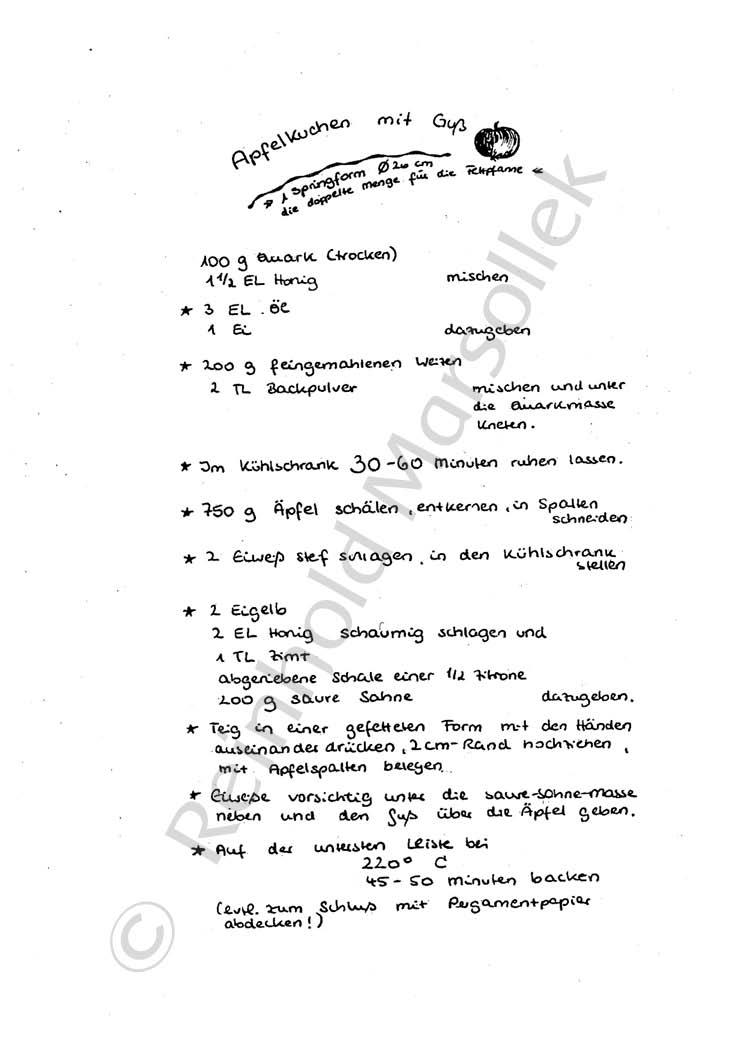 Apfelkuchen mit Guß
1 Springform Ø 26 cm
die doppelte menge für die Fettpfanne
100 g Quark (trocken)
1 1/2 EL Honig mischen
* 3 EL. Öl
1 Ei dazugeben
* 200 g feingemahlenen Weizen
2 TL Backpulver mischen und unter
die Quarkmasse
kneten.
* Im Kühlschrank 30-60 minuten ruhen lassen.
* 750 g Äpfel schälen, entkernen, in Spalten
schneiden
* 2 Eiweß steif schlagen, in den Kühlschrank
stellen
* 2 Eigelb
2 EL Honig schaumig schlagen und
1 TL Zimt
abgeriebene Schale einer 1/2 Zitrone
200 g saure Sahne dazugeben.
* Teig in einer gefetteten Form mit den Händen
auseinander drücken, 2 cm-Rand hochziehen,
mit Apfelspalten belegen.
* Eiweße vorsichtig unter die saure-Sahne-masse
heben und den Guß über die Äpfel geben.
* Auf der untersten Leiste bei
220° C
45-50 minuten backen
(evtl. zum Schluß mit Pergamentpapier
abdecken!)
© Reinhold Marsollek